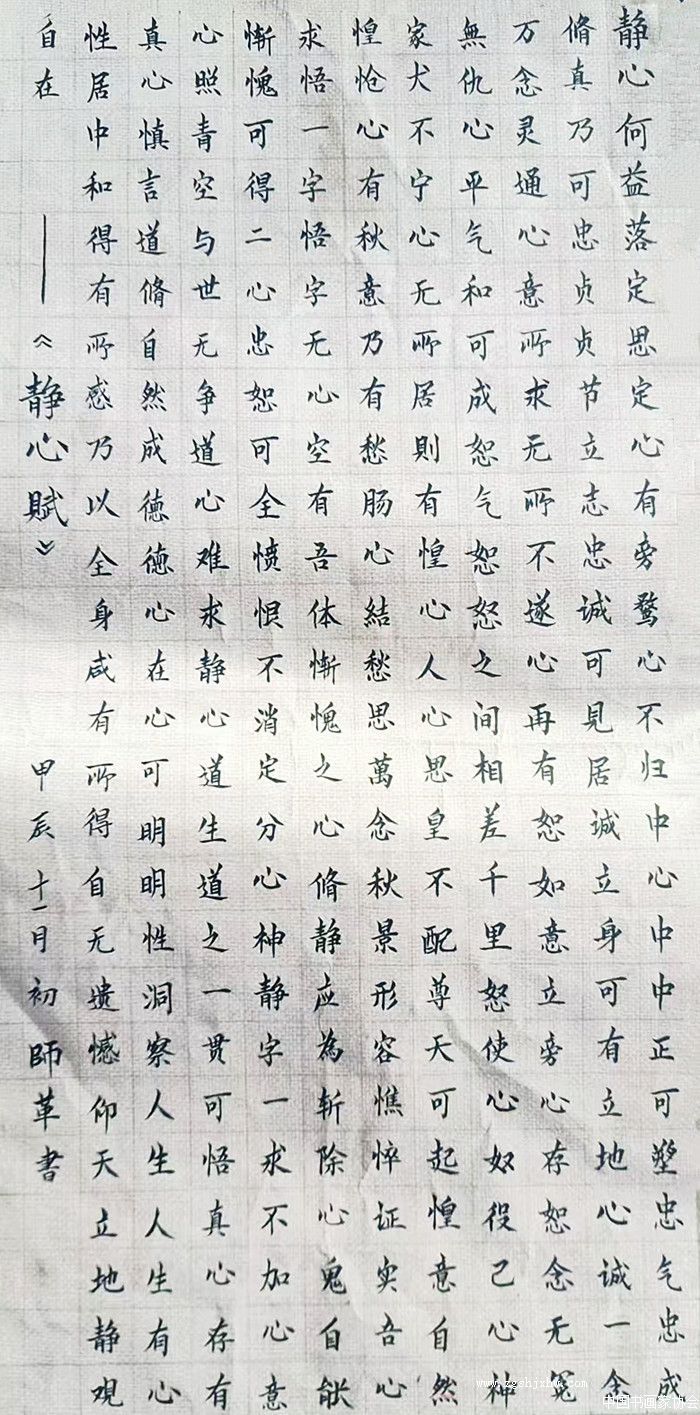 静心何益落定思定心有旁骛心不归中心中中正可塑忠气忠成
脩真乃可忠贞贞节立志忠诚可見居诚立身可有立地心诚一念
万念灵通心意所求无所不遂心再有恕如意立旁心存恕念无冤
無仇心平气和可成恕气恕怒之间相差千里怒使心奴役己心神
家犬不宁心无所居則有惶心人心思皇不配尊天可起惶意自然
惶怆心有秋意乃有愁肠心結愁思萬念秋景形容憔悴证实吾心
求悟一字悟字无心空有吾体惭愧之心脩静应為斩除心鬼自能
惭愧可得二心忠恕可全愤恨不消定分心神静字一求不加心意
心照青空与世无争道心难求静心道生道之一贯可悟真心存有
真心慎言道脩自然成德德心在心可明明性洞察人生人生有心
性居中和得有所感乃以全身咸有所得自无遗憾仰天立地静观
自在 ——《静心賦》 甲辰十一月初師革書
www.zgshjxh.com
中国书画家协会